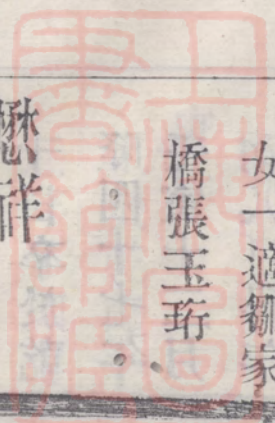 女一適鄒家
橋張玉珩
懋祥